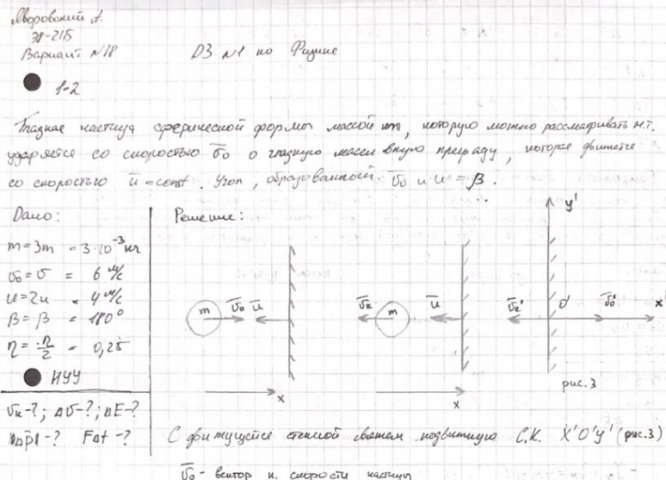 Яворовский А.
Э8-21Б
Вариант №18
ДЗ №1 по Физике
1-2
Гладкая частица сферической формы массой m, которую можно рассматривать м.т.
ударяется со скоростью v̄₀ о гладкую массивную преграду, которая движется
со скоростью ū = const. Угол, образованный v̄₀ и u = β.
Дано:
Решение:
m = 3m = 3·10⁻³ кг
v₀ = v = 6 м/с
u = 2u = 4 м/с
β = β = 180°
η = η/2 = 0,25
НУУ
vк-?; Δv-?; ΔE-?
|Δp|-? FΔt-?
m v̄₀ ū x
v̄к m ū x
y' v̄к' O' v̄₀' x'
рис.3
С движущейся стенкой свяжем подвижную С.К. X'O'Y' (рис.3)
v̄₀ - вектор н. скорости частицы